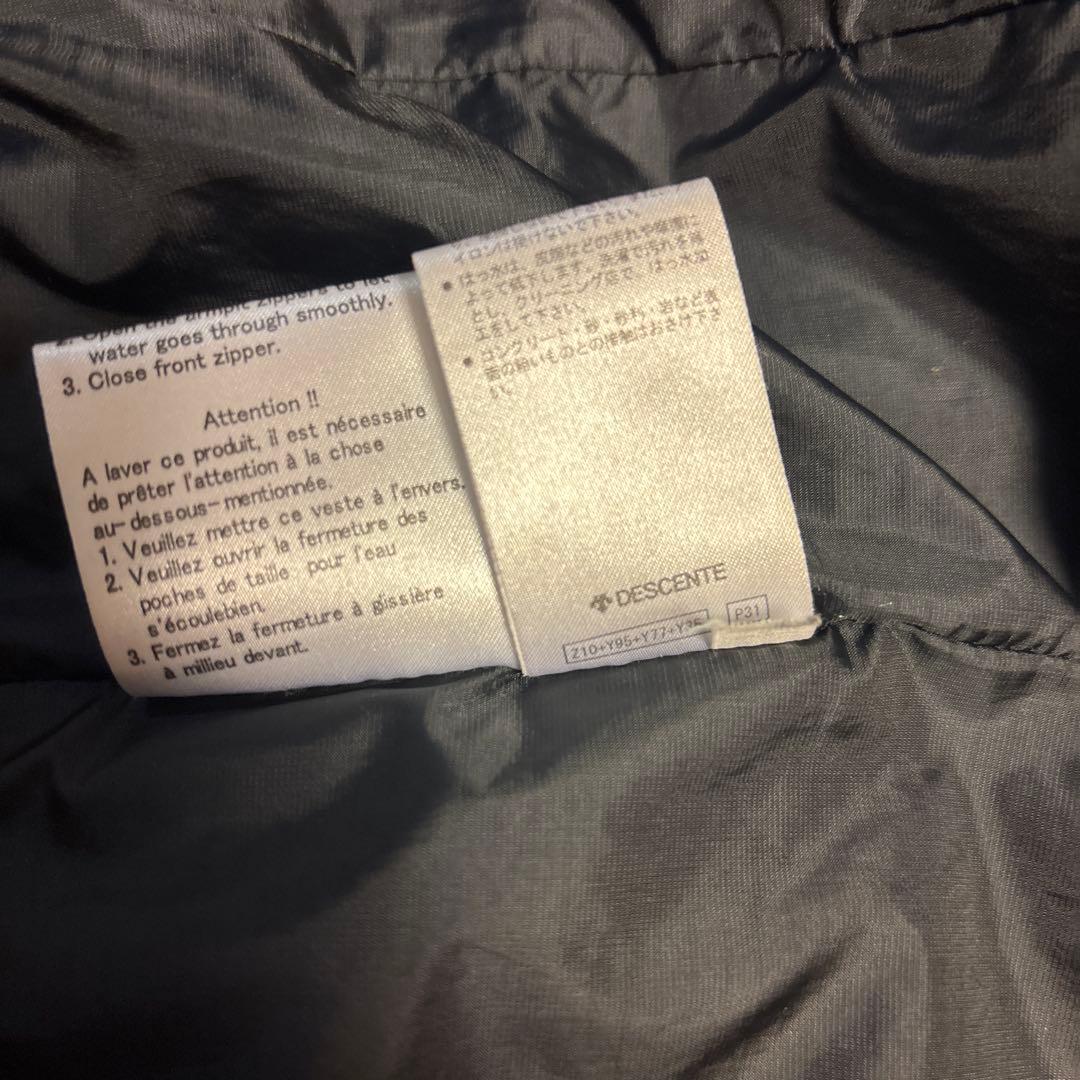 2. Open the armpit zippers to let
water goes through smoothly.
3. Close front zipper.
Attention !!
A laver ce produit, il est nécessaire
de prêter l'attention à la chose
au-dessous-mentionnée.
1. Veuillez mettre ce veste à l'envers.
2. Veuillez ouvrir la fermeture des
poches de taille pour l'eau
s'écoulebien.
3. Fermez la fermeture à glissière
à millieu devant.
イロンは掛けないで下さい。
●はっ水は、皮脂などの汚れや摩擦に
よって低下します。洗濯で汚れを落
とし、クリーニング店で、はっ水加
工をして下さい。
●コンクリート・砂・砂れき、岩など表
面の粗いものとの接触はおさけ下さ
い。
DESCENTE
Z10+Y95+Y77+Y35
P31